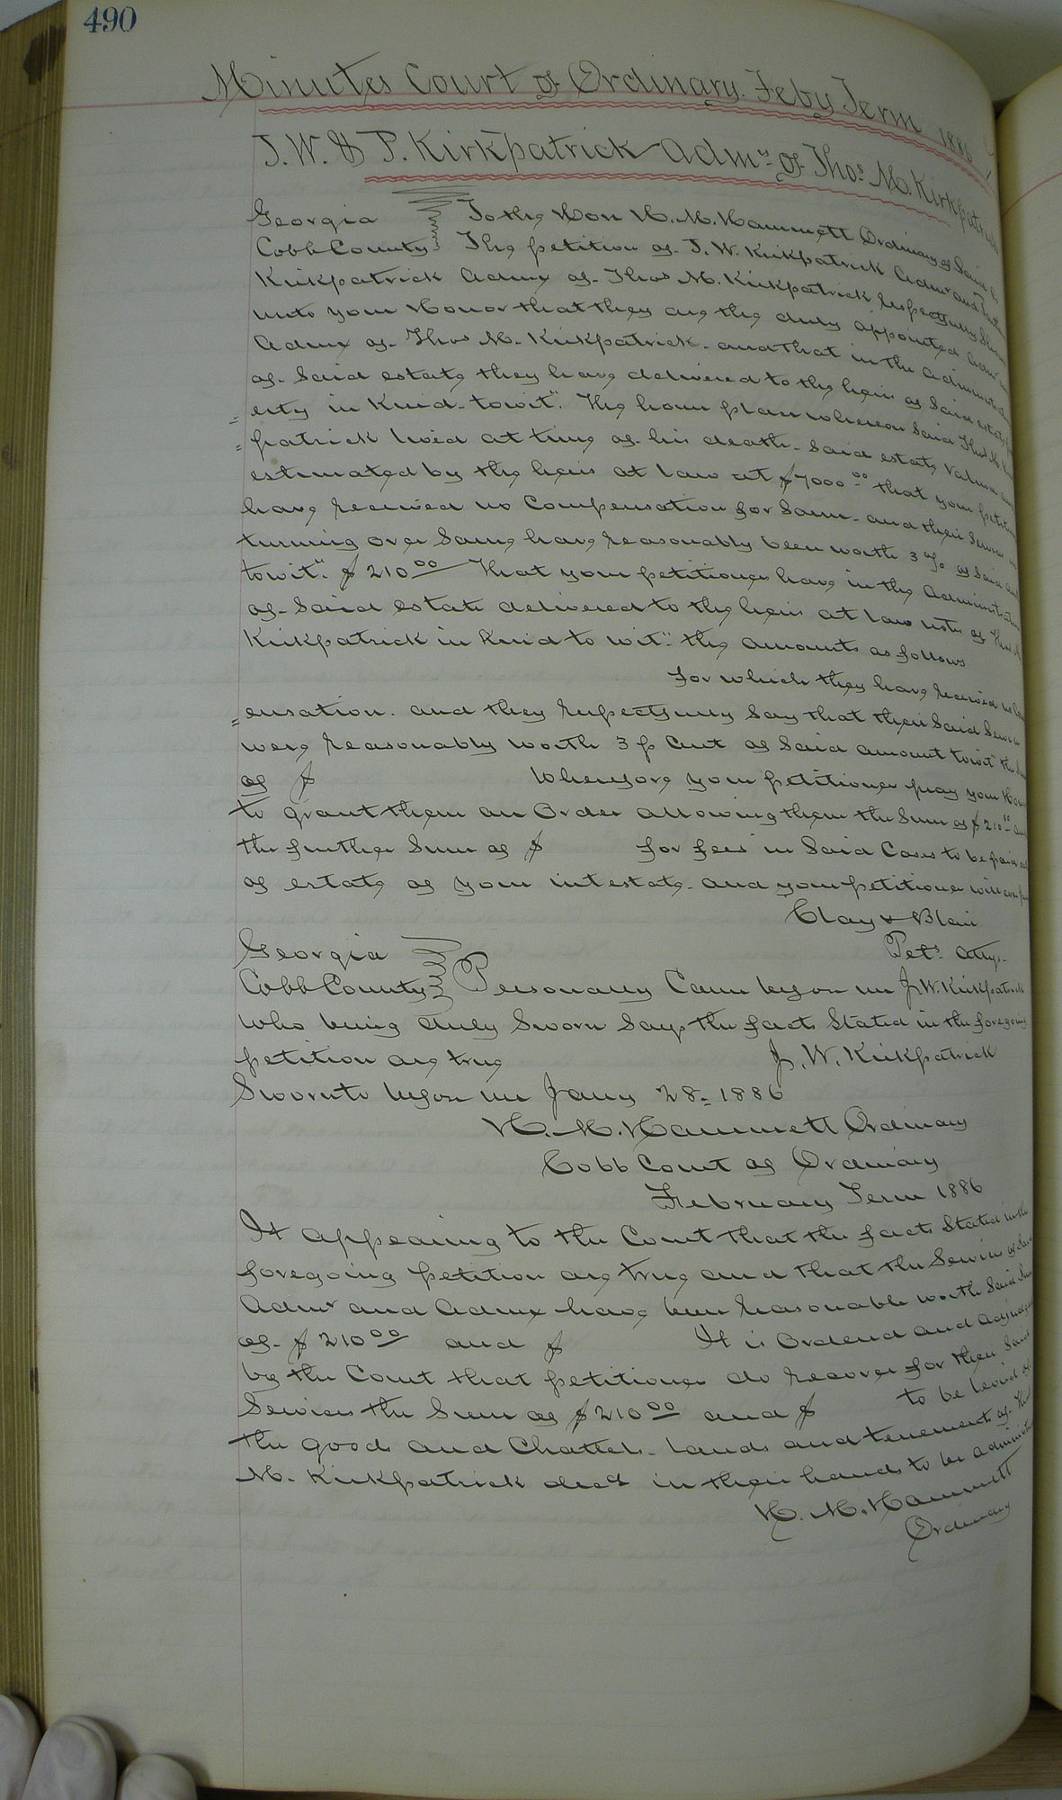 490
Minutes Court of Ordinary. Feby Term 1886
J. W. & P. Kirkpatrick Admrs of Thos M. Kirkpatrick
Georgia To the Hon H. M. Hammett Ordinary of Said Co
Cobb County The petition of J. W. Kirkpatrick Admr and
Kirkpatrick Admx of Thos M. Kirkpatrick Respectfully
unto your Honor that they are the duly appointed Admr
Admx of Thos M. Kirkpatrick. and that in the
of Said estate they have delivered to the heirs of Said estate
erty in Kind. towit". The home place whereon Said Thos M.
patrick lived at time of his death. Said estate
estimated by the heirs at law at $7000 00 that your
have received no Compensation for Same. and their
turning over Same have reasonably been worth 3 % of Said
towit". $210 00 That your petitioners have in the
of Said estate delivered to the heirs at law of
Kirkpatrick in Kind to wit": the amounts as follows
for which they have received no
ensation. and they respectfully Say that their Said
were reasonably worth 3 p Cent of Said amount towit the
of $ Wherefore your petitioners pray your
to grant them an Order allowing them the Sum of $210 00
the further Sum of $ for fees in Said Cases to be paid
of estate of your intestate. and your petitioners will
Clay & Blair
Pets Attys.
Georgia
Cobb County Personally Came before me J. W. Kirkpatrick
who being duly Sworn Says the facts Stated in the foregoing
petition are true J. W. Kirkpatrick
Sworn to before me Jany 28. 1886
H. M. Hammett Ordinary
Cobb Court of Ordinary
February Term 1886
It appearing to the Court that the facts Stated in the
foregoing petition are true and that the Services of
Admr and Admx have been reasonable worth Said
of $ 210 00 and $ It is Ordered and
by the Court that petitioners do recover for their Said
Services the Sum of $210 00 and $ to be levied of
the goods and Chattels. lands and tenements of
M. Kirkpatrick decd in their hands to be
H. M. Hammett
Ordinary